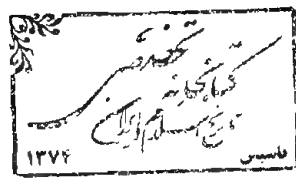 تخصصی
کتابخانه
تاریخ اسلام و ایران
تاسیس ۱۳۷۴